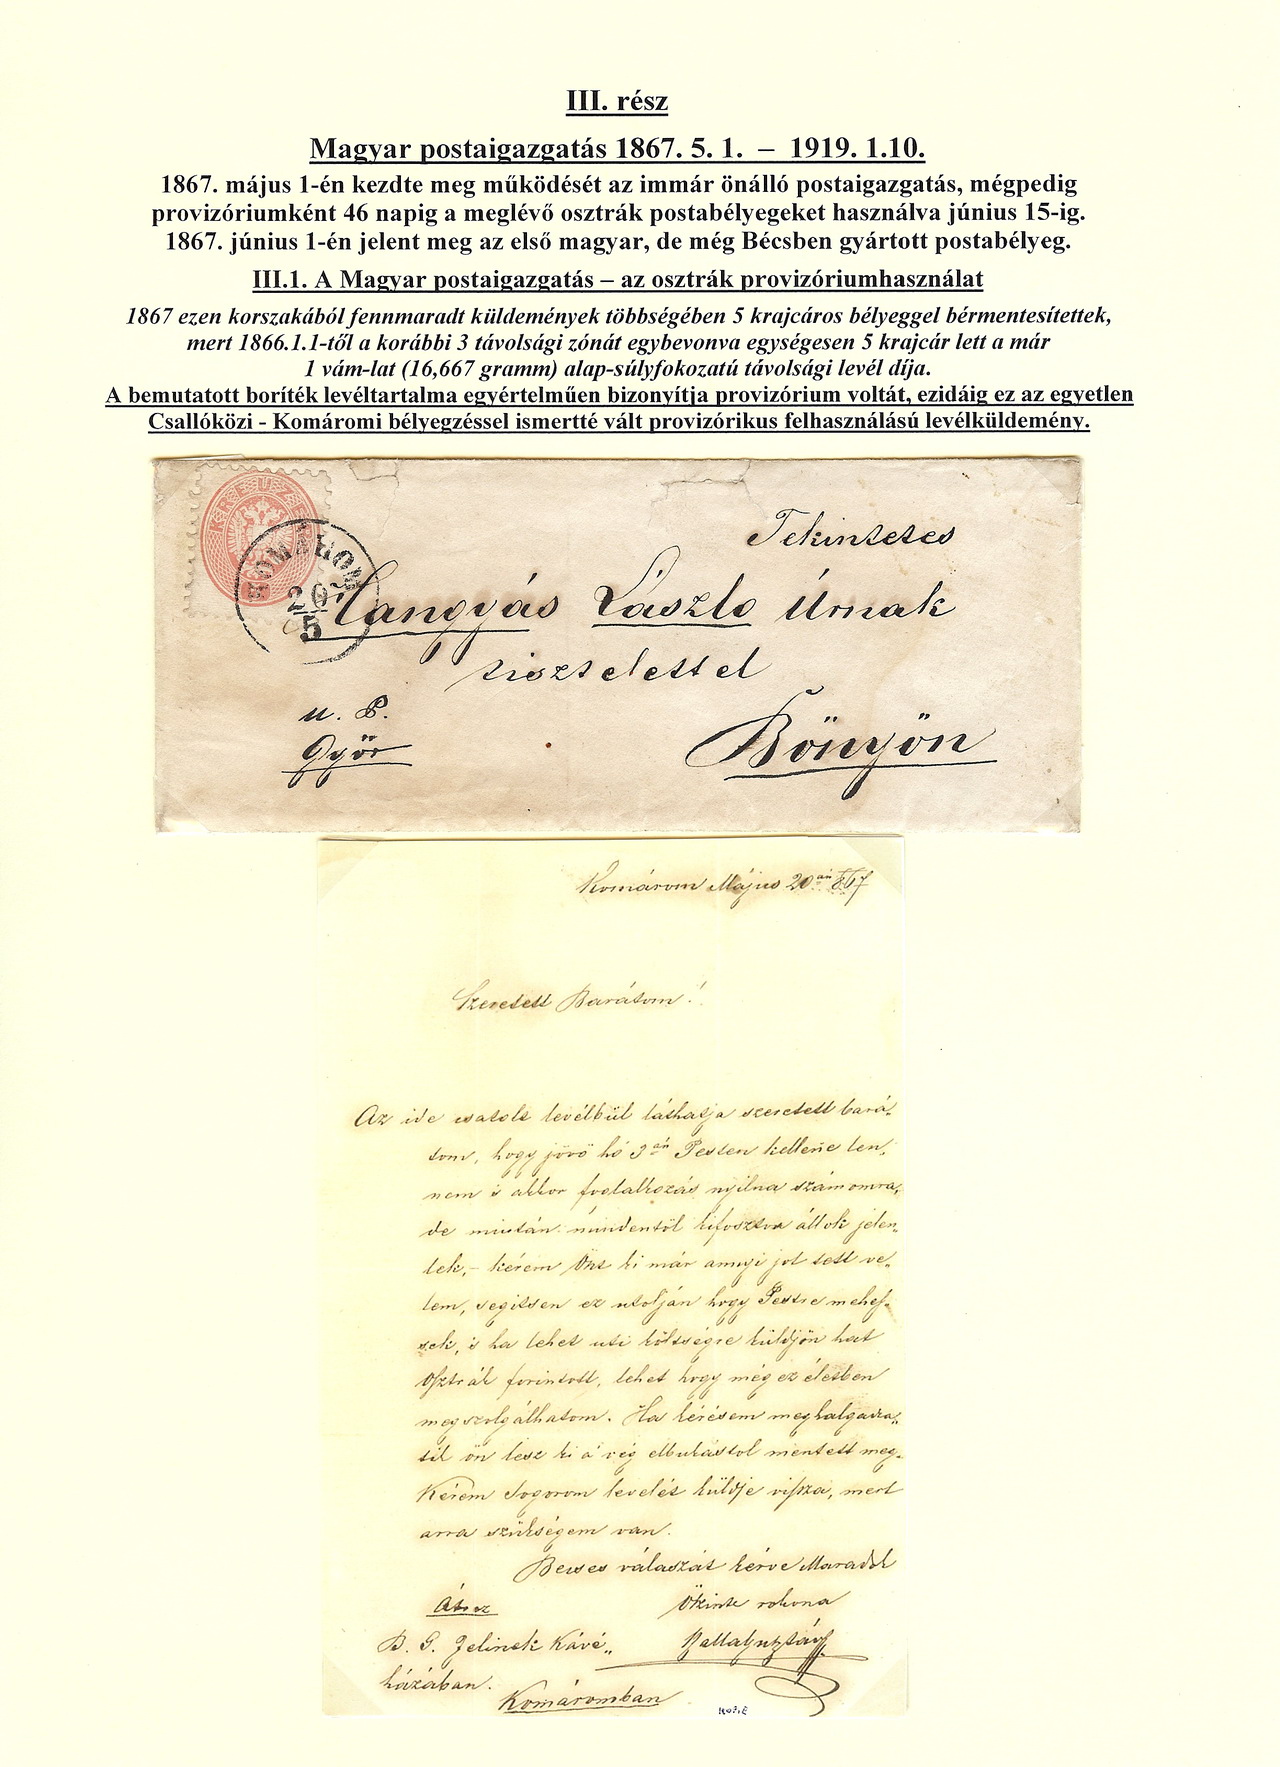 III. rész
Magyar postaigazgatás 1867. 5. 1. – 1919. 1.10.
1867. május 1-én kezdte meg működését az immár önálló postaigazgatás, mégpedig
provizóriumként 46 napig a meglévő osztrák postabélyegeket használva június 15-ig.
1867. június 1-én jelent meg az első magyar, de még Bécsben gyártott postabélyeg.
III.1. A Magyar postaigazgatás – az osztrák provizóriumhasználat
1867 ezen korszakából fennmaradt küldemények többségében 5 krajcáros bélyeggel bérmentesítettek,
mert 1866.1.1-től a korábbi 3 távolsági zónát egybevonva egységesen 5 krajcár lett a már
1 vám-lat (16,667 gramm) alap-súlyfokozatú távolsági levél díja.
A bemutatott boríték levéltartalma egyértelműen bizonyítja provizórium voltát, ezidáig ez az egyetlen
Csallóközi - Komáromi bélyegzéssel ismertté vált provizórikus felhasználású levélküldemény.
KOMÁROM
20
5
Tekintetes
Hangyás László Úrnak
tisztelettel
u. P.
Győr
Bőnyön
Komárom Május 20án 867
Szeretett Barátom!
Az ide csatolt levélbül láthatja szeretett bará„
tom, hogy jövő hó 3án Pesten kellene len„
nem s akkor foglalkozás nyilna számomra,
de miután mindentöl kifosztva állok jelen„
lek, - kérem Önt ki már annyi jot tett ve„
lem, segitsen ez utolján hogy Pestre mehes„
sek, s ha lehet uti költségre küldjön hat
Osztrák forintott, lehet hogy még ez életben
megszolgálhatom. Ha kérésem meghalgatta„
tik ön lesz ki a vég elbukástol mentett meg.
Kérem Sogorom levelét küldje vissza, mert
arra szükségem van.
Becses válaszát kérve Maradok
Őszinte rokona
B. G. Zelinek Kávé„
házában.
Komáromban